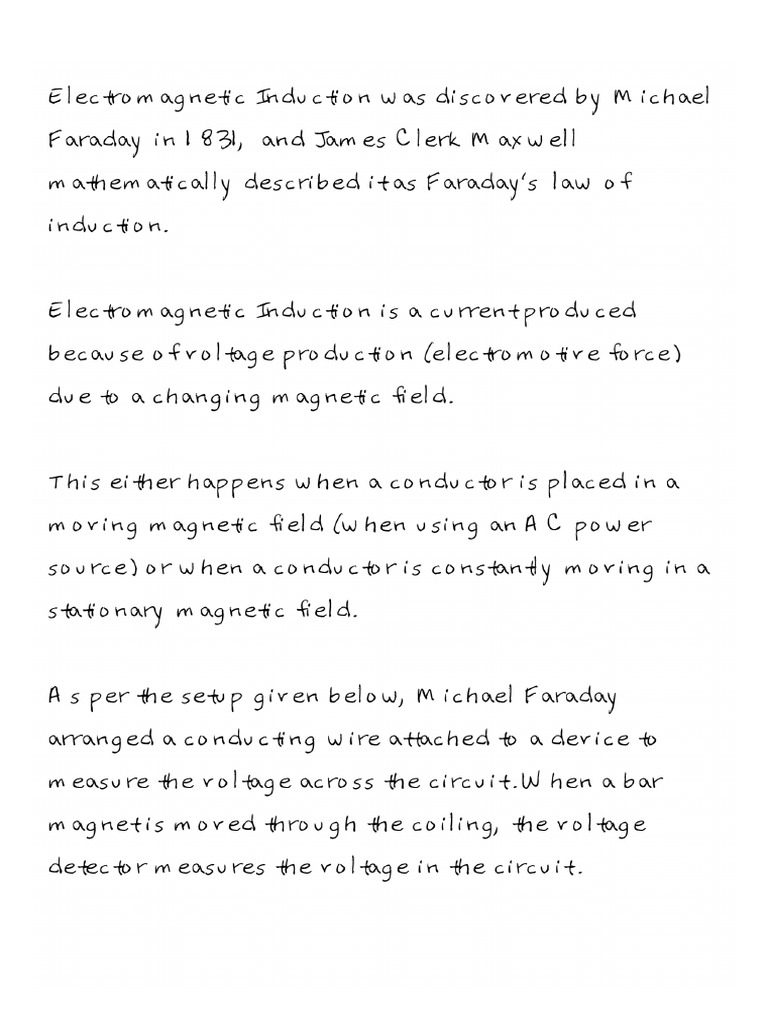 Electromagnetic Induction was discovered by Michael
Faraday in 1831, and James Clerk Maxwell
mathematically described it as Faraday's law of
induction.
Electromagnetic Induction is a current produced
because of voltage production (electromotive force)
due to a changing magnetic field.
This either happens when a conductor is placed in a
moving magnetic field (when using an AC power
source) or when a conductor is constantly moving in a
stationary magnetic field.
As per the setup given below, Michael Faraday
arranged a conducting wire attached to a device to
measure the voltage across the circuit. When a bar
magnet is moved through the coiling, the voltage
detector measures the voltage in the circuit.